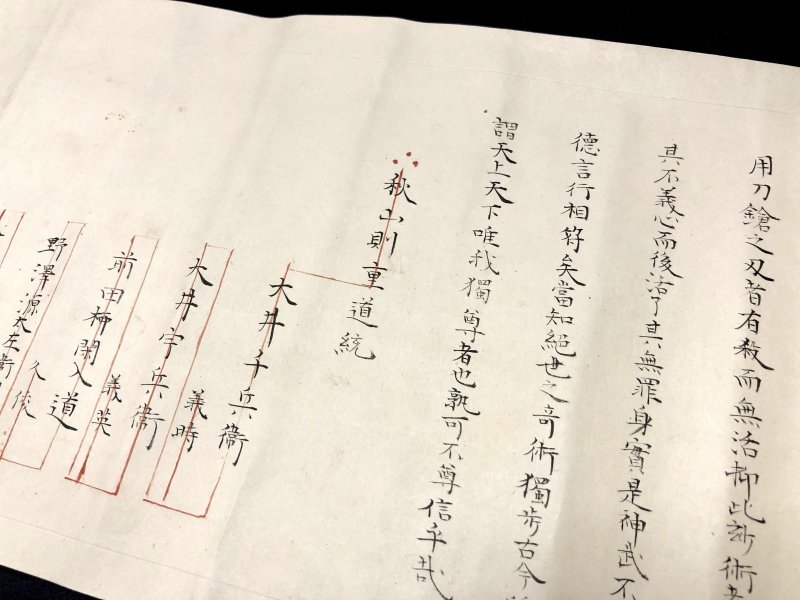 用刀鎗之刄者有殺而無活抑此術
其不義心而後活了其無罪身實是神武不
德言行相符矣當知絕世之奇術獨步古今
謂天上天下唯我獨尊者也孰可不尊信乎哉
秋山則重道統
大井千兵衞
大井宇兵衞
義時
前田柳閑入道
義英
野澤源太左衞
久俊